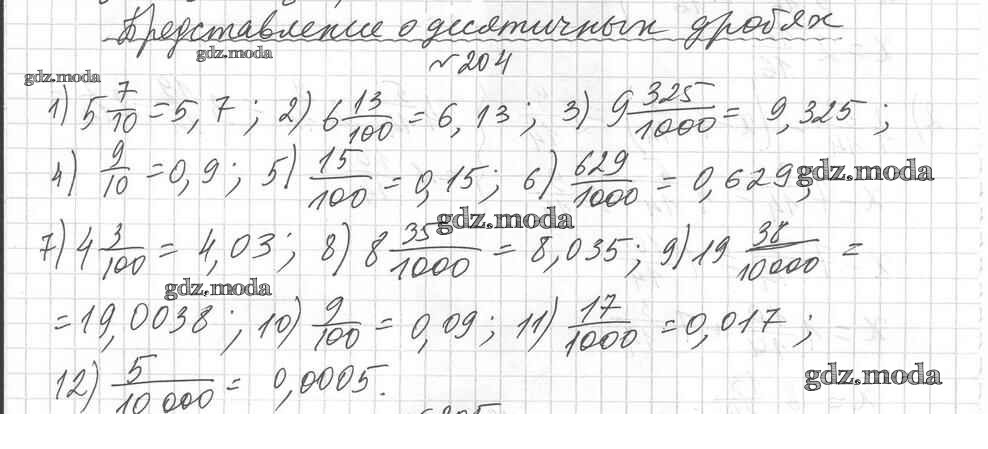 Представление о десятичных дробях
gdz.moda
№204
gdz.moda
1) 5 7/10 = 5,7; 2) 6 13/100 = 6,13; 3) 9 325/1000 = 9,325;
4) 9/10 = 0,9; 5) 15/100 = 0,15; 6) 629/1000 = 0,629;
gdz.moda
gdz.moda
7) 4 3/100 = 4,03; 8) 8 35/1000 = 8,035; 9) 19 38/10000 =
gdz.moda
= 19,0038; 10) 9/100 = 0,09; 11) 17/1000 = 0,017;
12) 5/10 000 = 0,0005.
gdz.moda